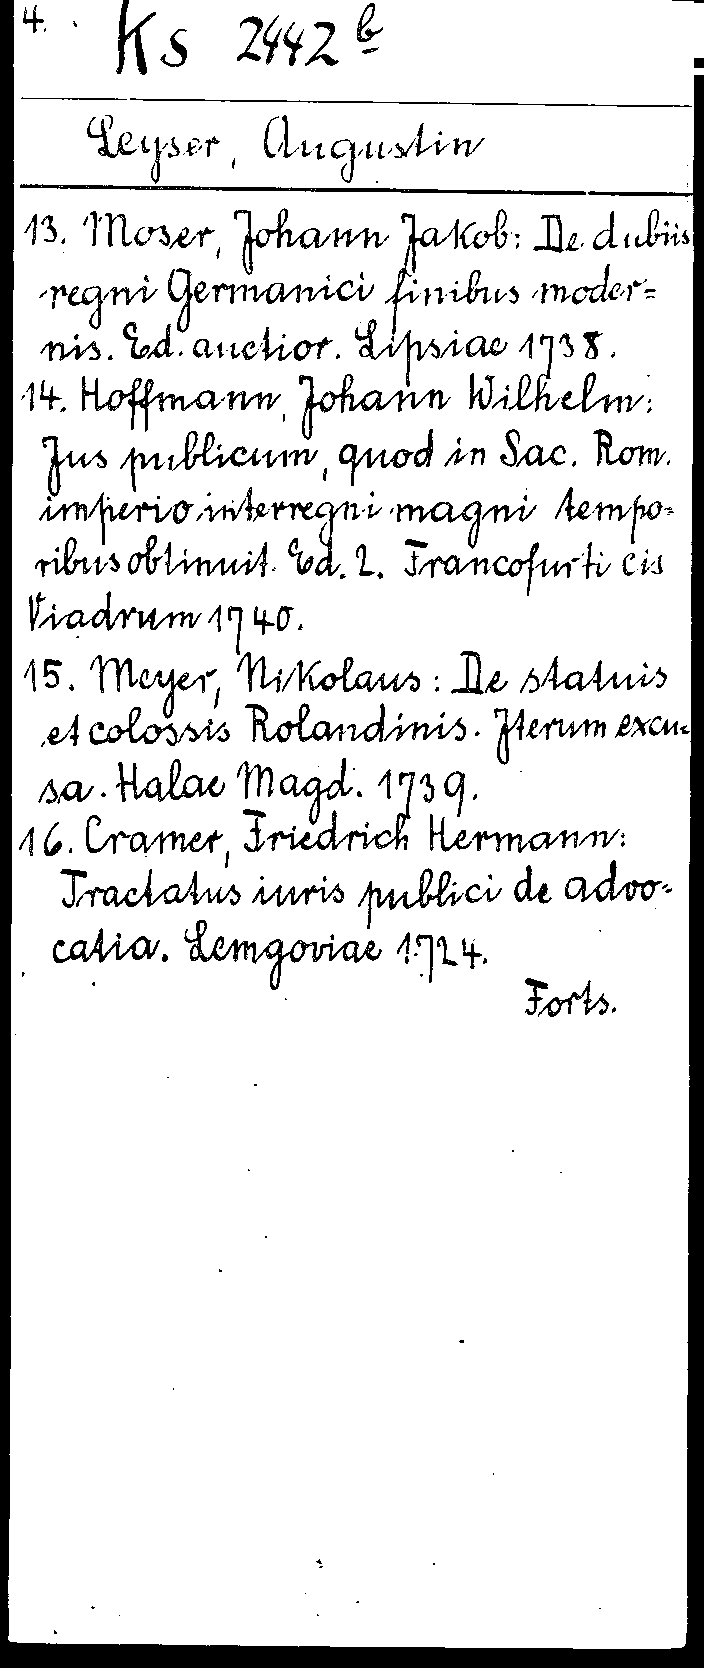 4. Ks 2442 b
Leyser, Augustin
13. Moser, Johann Jakob: De dubiis
regni Germanici finibus moder=
nis. Ed. auctior. Lipsiae 1738.
14. Hoffmann, Johann Wilhelm:
Jus publicum, quod in Sac. Rom.
imperio interregni magni tempo=
ribus obtinuit. Ed. 2. Francofurti cis
Viadrum 1740.
15. Meyer, Nikolaus: De statuis
et colossis Rolandinis. Iterum excu=
sa. Halae Magd. 1739.
16. Cramer, Friedrich Hermann:
Tractatus iuris publici de advo=
catia. Lemgoviae 1724.
Forts.